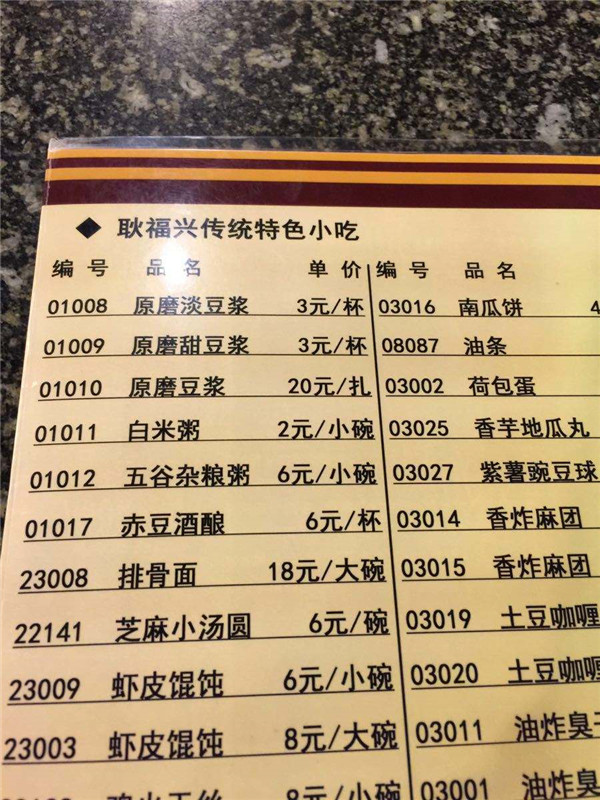 ◆ 耿福兴传统特色小吃
编号 品名 单价 编号 品名
01008 原磨淡豆浆 3元/杯 03016 南瓜饼 4
01009 原磨甜豆浆 3元/杯 08087 油条
01010 原磨豆浆 20元/扎 03002 荷包蛋
01011 白米粥 2元/小碗 03025 香芋地瓜丸
01012 五谷杂粮粥 6元/小碗 03027 紫薯豌豆球
01017 赤豆酒酿 6元/杯 03014 香炸麻团
23008 排骨面 18元/大碗 03015 香炸麻团
22141 芝麻小汤圆 6元/碗 03019 土豆咖喱
23009 虾皮馄饨 6元/小碗 03020 土豆咖喱
23003 虾皮馄饨 8元/大碗 03011 油炸臭
8元/小碗 03001 油炸臭